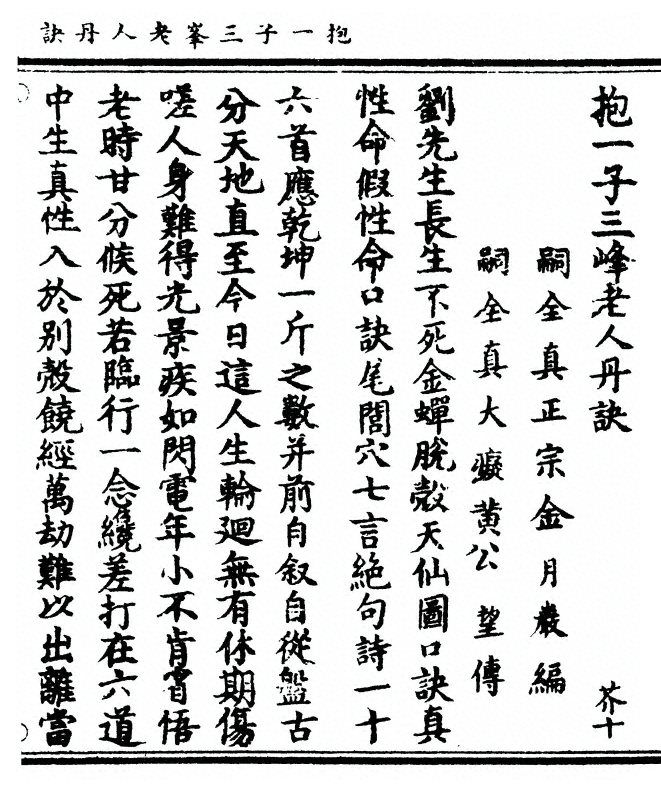 抱一子三峯老人丹訣
抱一子三峰老人丹訣 芥十
嗣全真正宗金月巖編
嗣全真大癡黄公望傳
劉先生長生不死金蟬脫殼天仙圖口訣真
性命假性命口訣尾閭穴七言絕句詩一十
六首應乾坤一斤之數并前自叙自從盤古
分天地直至今日這人生輪廻無有休期傷
嗟人身難得光景疾如閃電年小不肯省悟
老時甘分候死若臨行一念纔差打在六道
中生真性入於別殼饒經萬劫難以出離當